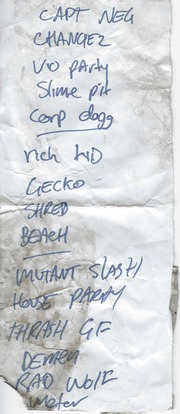 CAPT NEG
CHANGEZ
VIO PARTY
Slime pit
Corp dogg
rich kID
GECKO
SHRED
BEACH
MUTANT SLASH
HOUSE PARTY
THRASH GF
RAD WOLF